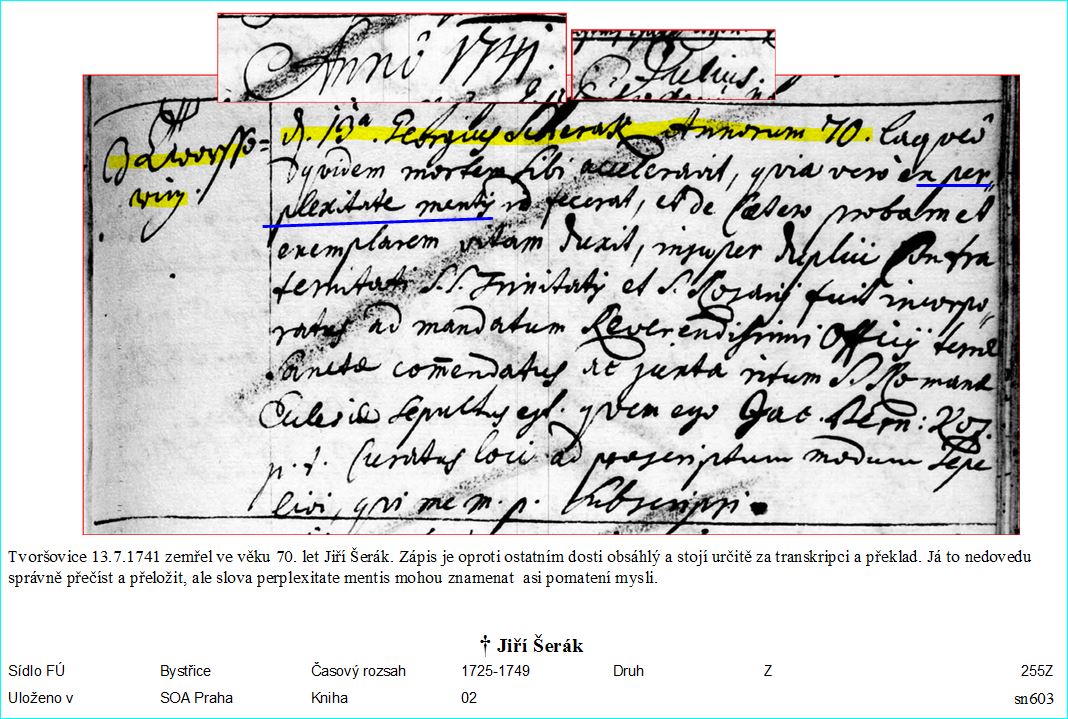 Annô 1741.
Julius.
d. 13ª. Georgius Scherak Annorum 70. laqveô
qvidem mortem sibi acceleravit, qvia verò ex per„
plexitate mentis id fecerat, et de Cætero probam et
exemplarem vitam duxit, insuper duplici Confra
ternitati S.S. Trinitatis et S. Rosarij fuit incorpo„
ratus ad mandatum Reverendissimi Officij terræ
Sanctæ com̄endatus ac juxta ritum S. Romanæ
Ecclesiæ sepultus est. qvem ego Jac. Bern:
p. t. Curatus loci ad præscriptum modum sepe
livi, qvi me m. p. subscripsi.
Tvoršovice 13.7.1741 zemřel ve věku 70. let Jiří Šerák. Zápis je oproti ostatním dosti obsáhlý a stojí určitě za transkripci a překlad. Já to nedovedu
správně přečíst a přeložit, ale slova perplexitate mentis mohou znamenat asi pomatení mysli.
† Jiří Šerák
Sídlo FÚ Bystřice Časový rozsah 1725-1749 Druh Z 255Z
Uloženo v SOA Praha Kniha 02 sn603